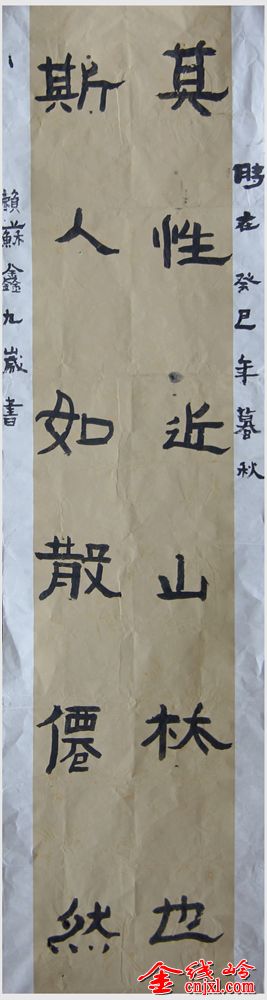 時在癸巳年暮秋
其性近山林也
斯人如散僊然
賴蘇鑫九歲書
金线岭
cnjxl.com